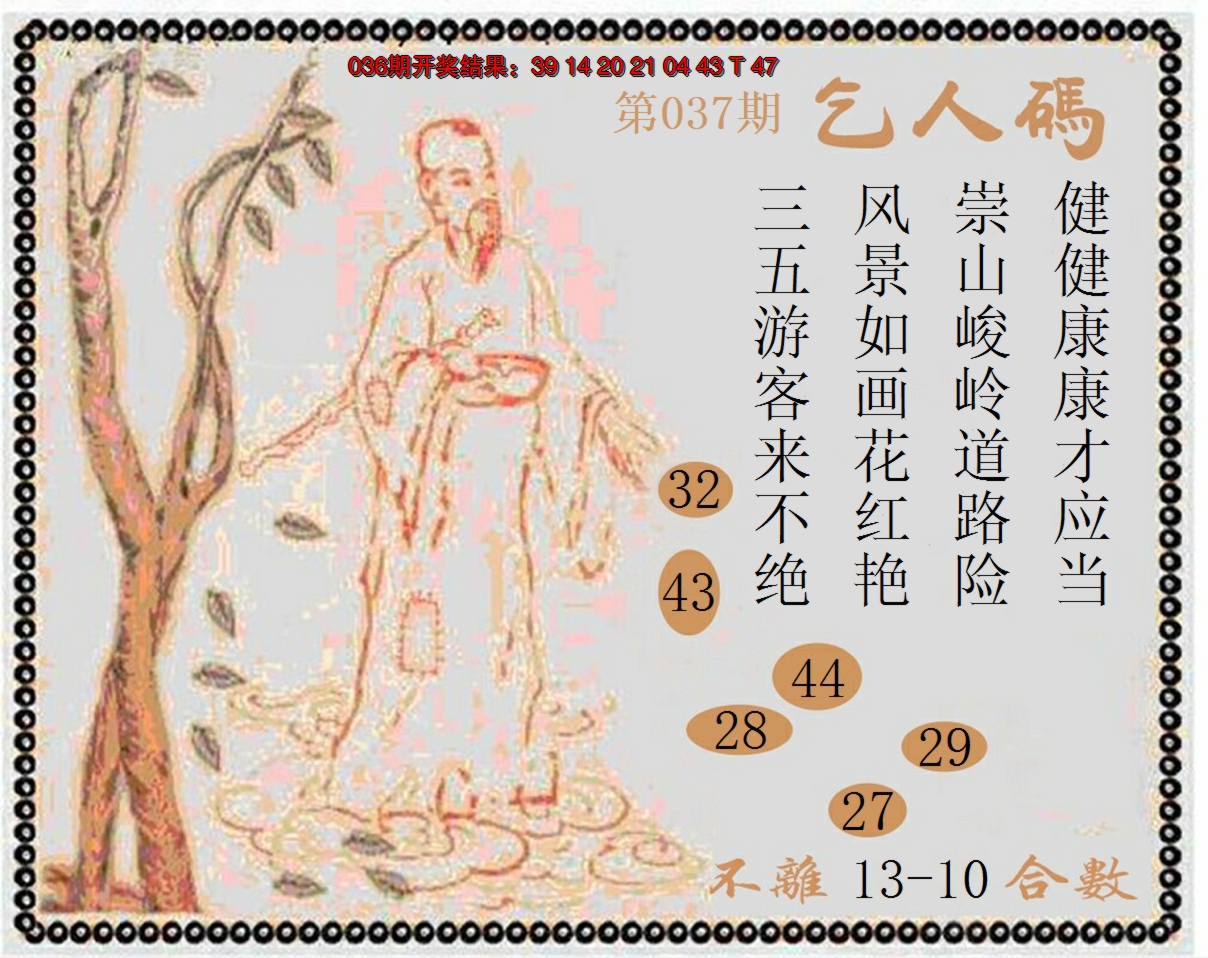 036期开奖结果：39 14 20 21 04 43 T 47
第037期 乞人碼
健健康康才应当
崇山峻岭道路险
风景如画花红艳
三五游客来不绝
32
43
44
28
29
27
不離 13-10 合數